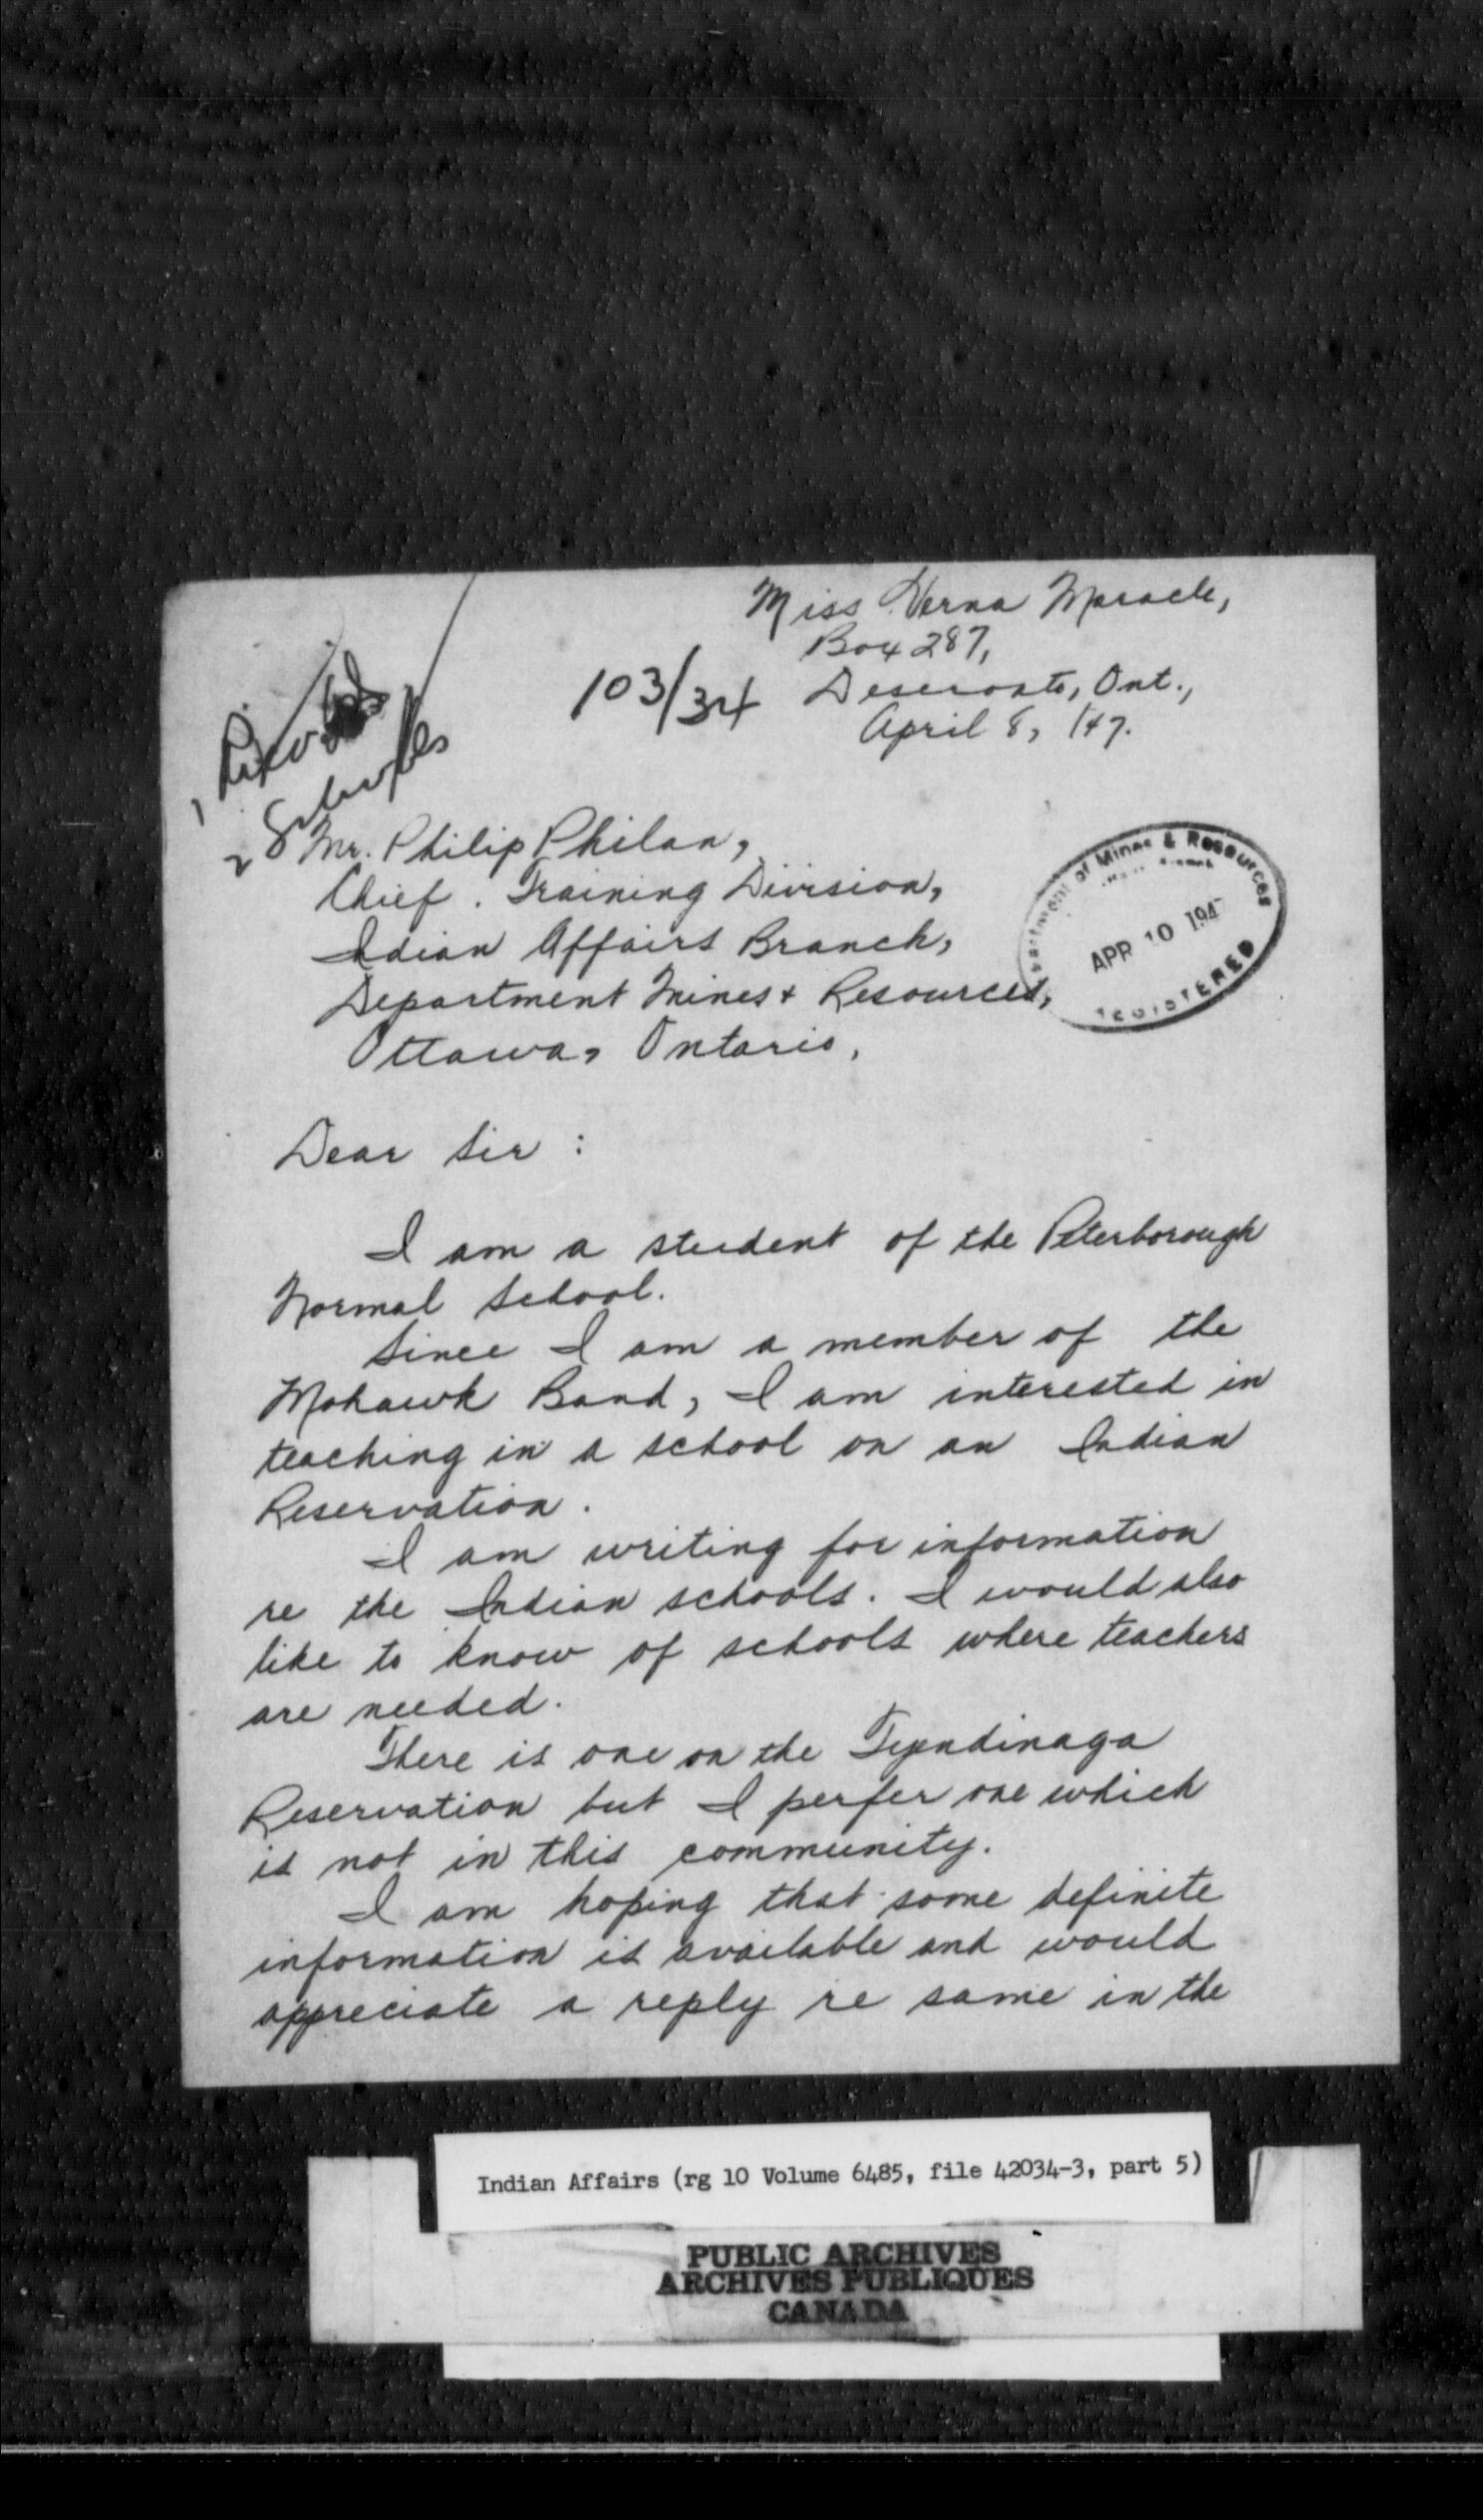 Miss Verna Maracle,
Box 287,
103/34 Deseronto, Ont.,
April 8, /47.
1
2
Mr. Philip Philan,
Chief. Training Division,
Indian Affairs Branch,
Department Mines & Resources,
Ottawa, Ontario,
Department of Mines & Resources
APR 10 194
REGISTERED
Dear Sir :
I am a student of the Peterborough
Normal School.
Since I am a member of the
Mohawk Band, I am interested in
teaching in a school on an Indian
Reservation.
I am writing for information
re the Indian schools. I would also
like to know of schools where teachers
are needed.
There is one on the Tyendinaga
Reservation but I perfer one which
is not in this community.
I am hoping that some definite
information is available and would
appreciate a reply re same in the
Indian Affairs (rg 10 Volume 6485, file 42034-3, part 5)
PUBLIC ARCHIVES
ARCHIVES PUBLIQUES
CANADA